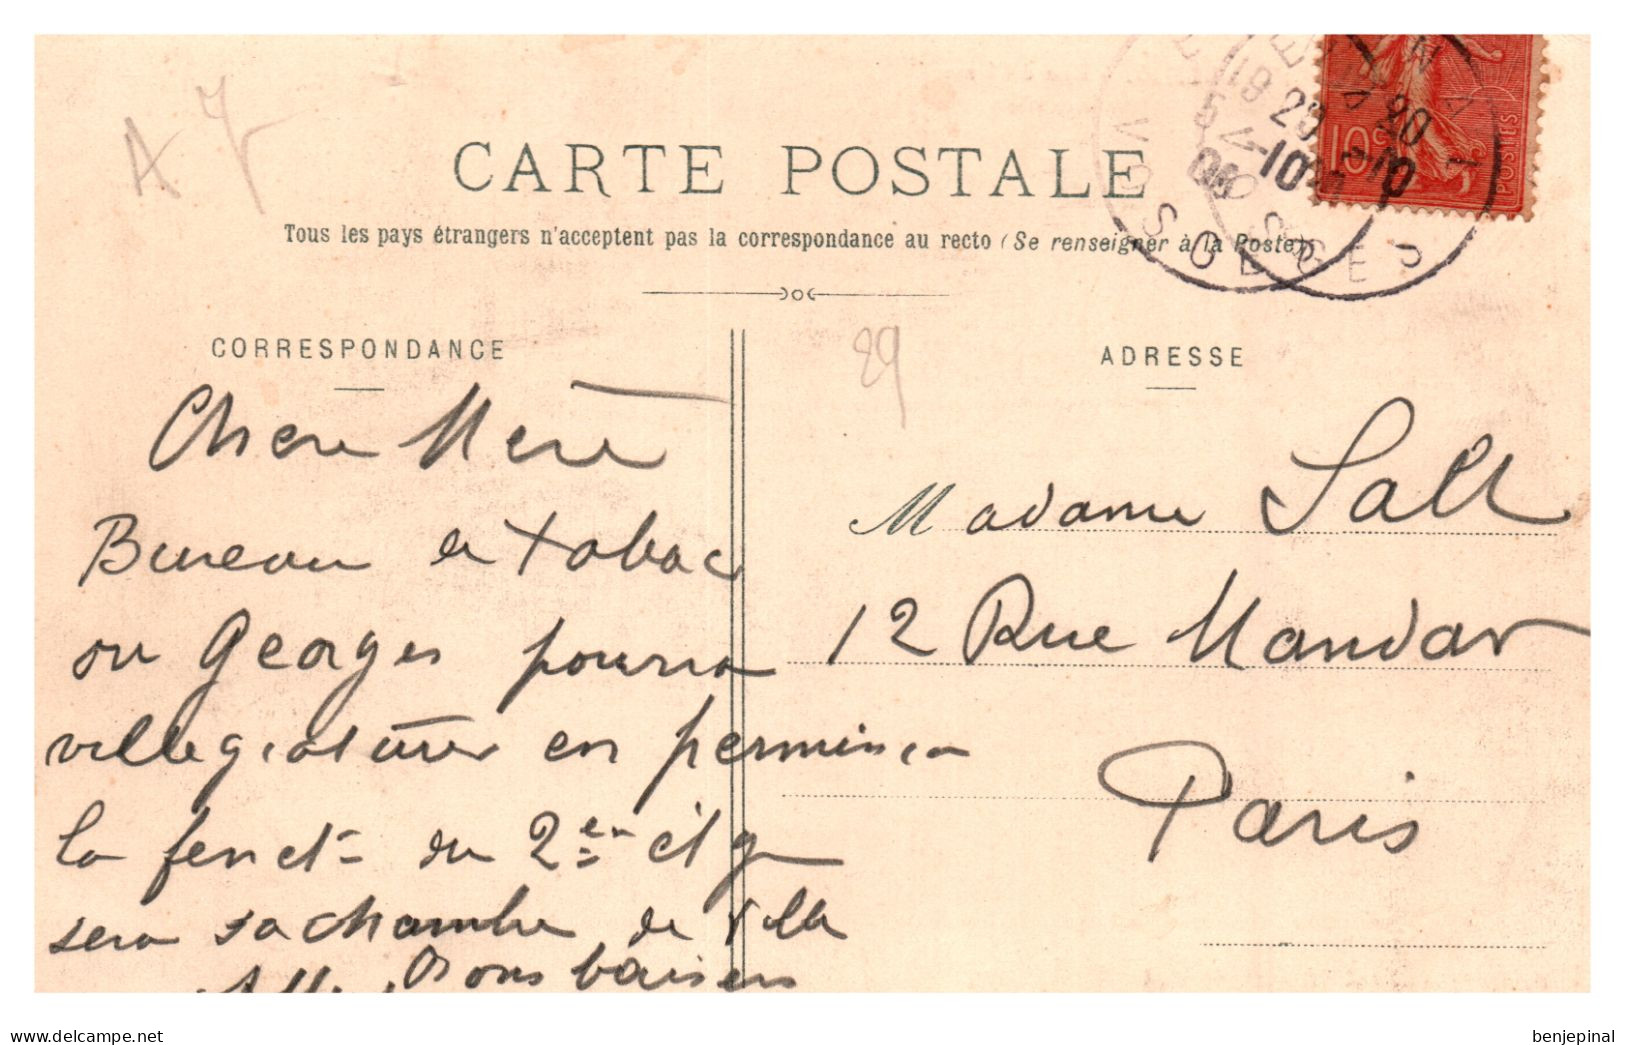 A 7
CARTE POSTALE
Tous les pays étrangers n'acceptent pas la correspondance au recto (Se renseigner à la Poste)
10c
POSTES
20
VOSGES
VOSGES
CORRESPONDANCE
89
ADRESSE
Chere Mere
Bureau de tabac
ou Georges pourra
villegiaturer en permission
la fenetre du 2em etg
sera sa chambre de ville
bons baisers
Madame Sall
12 Rue Mandar
Paris
delcampe.net
benjepinal